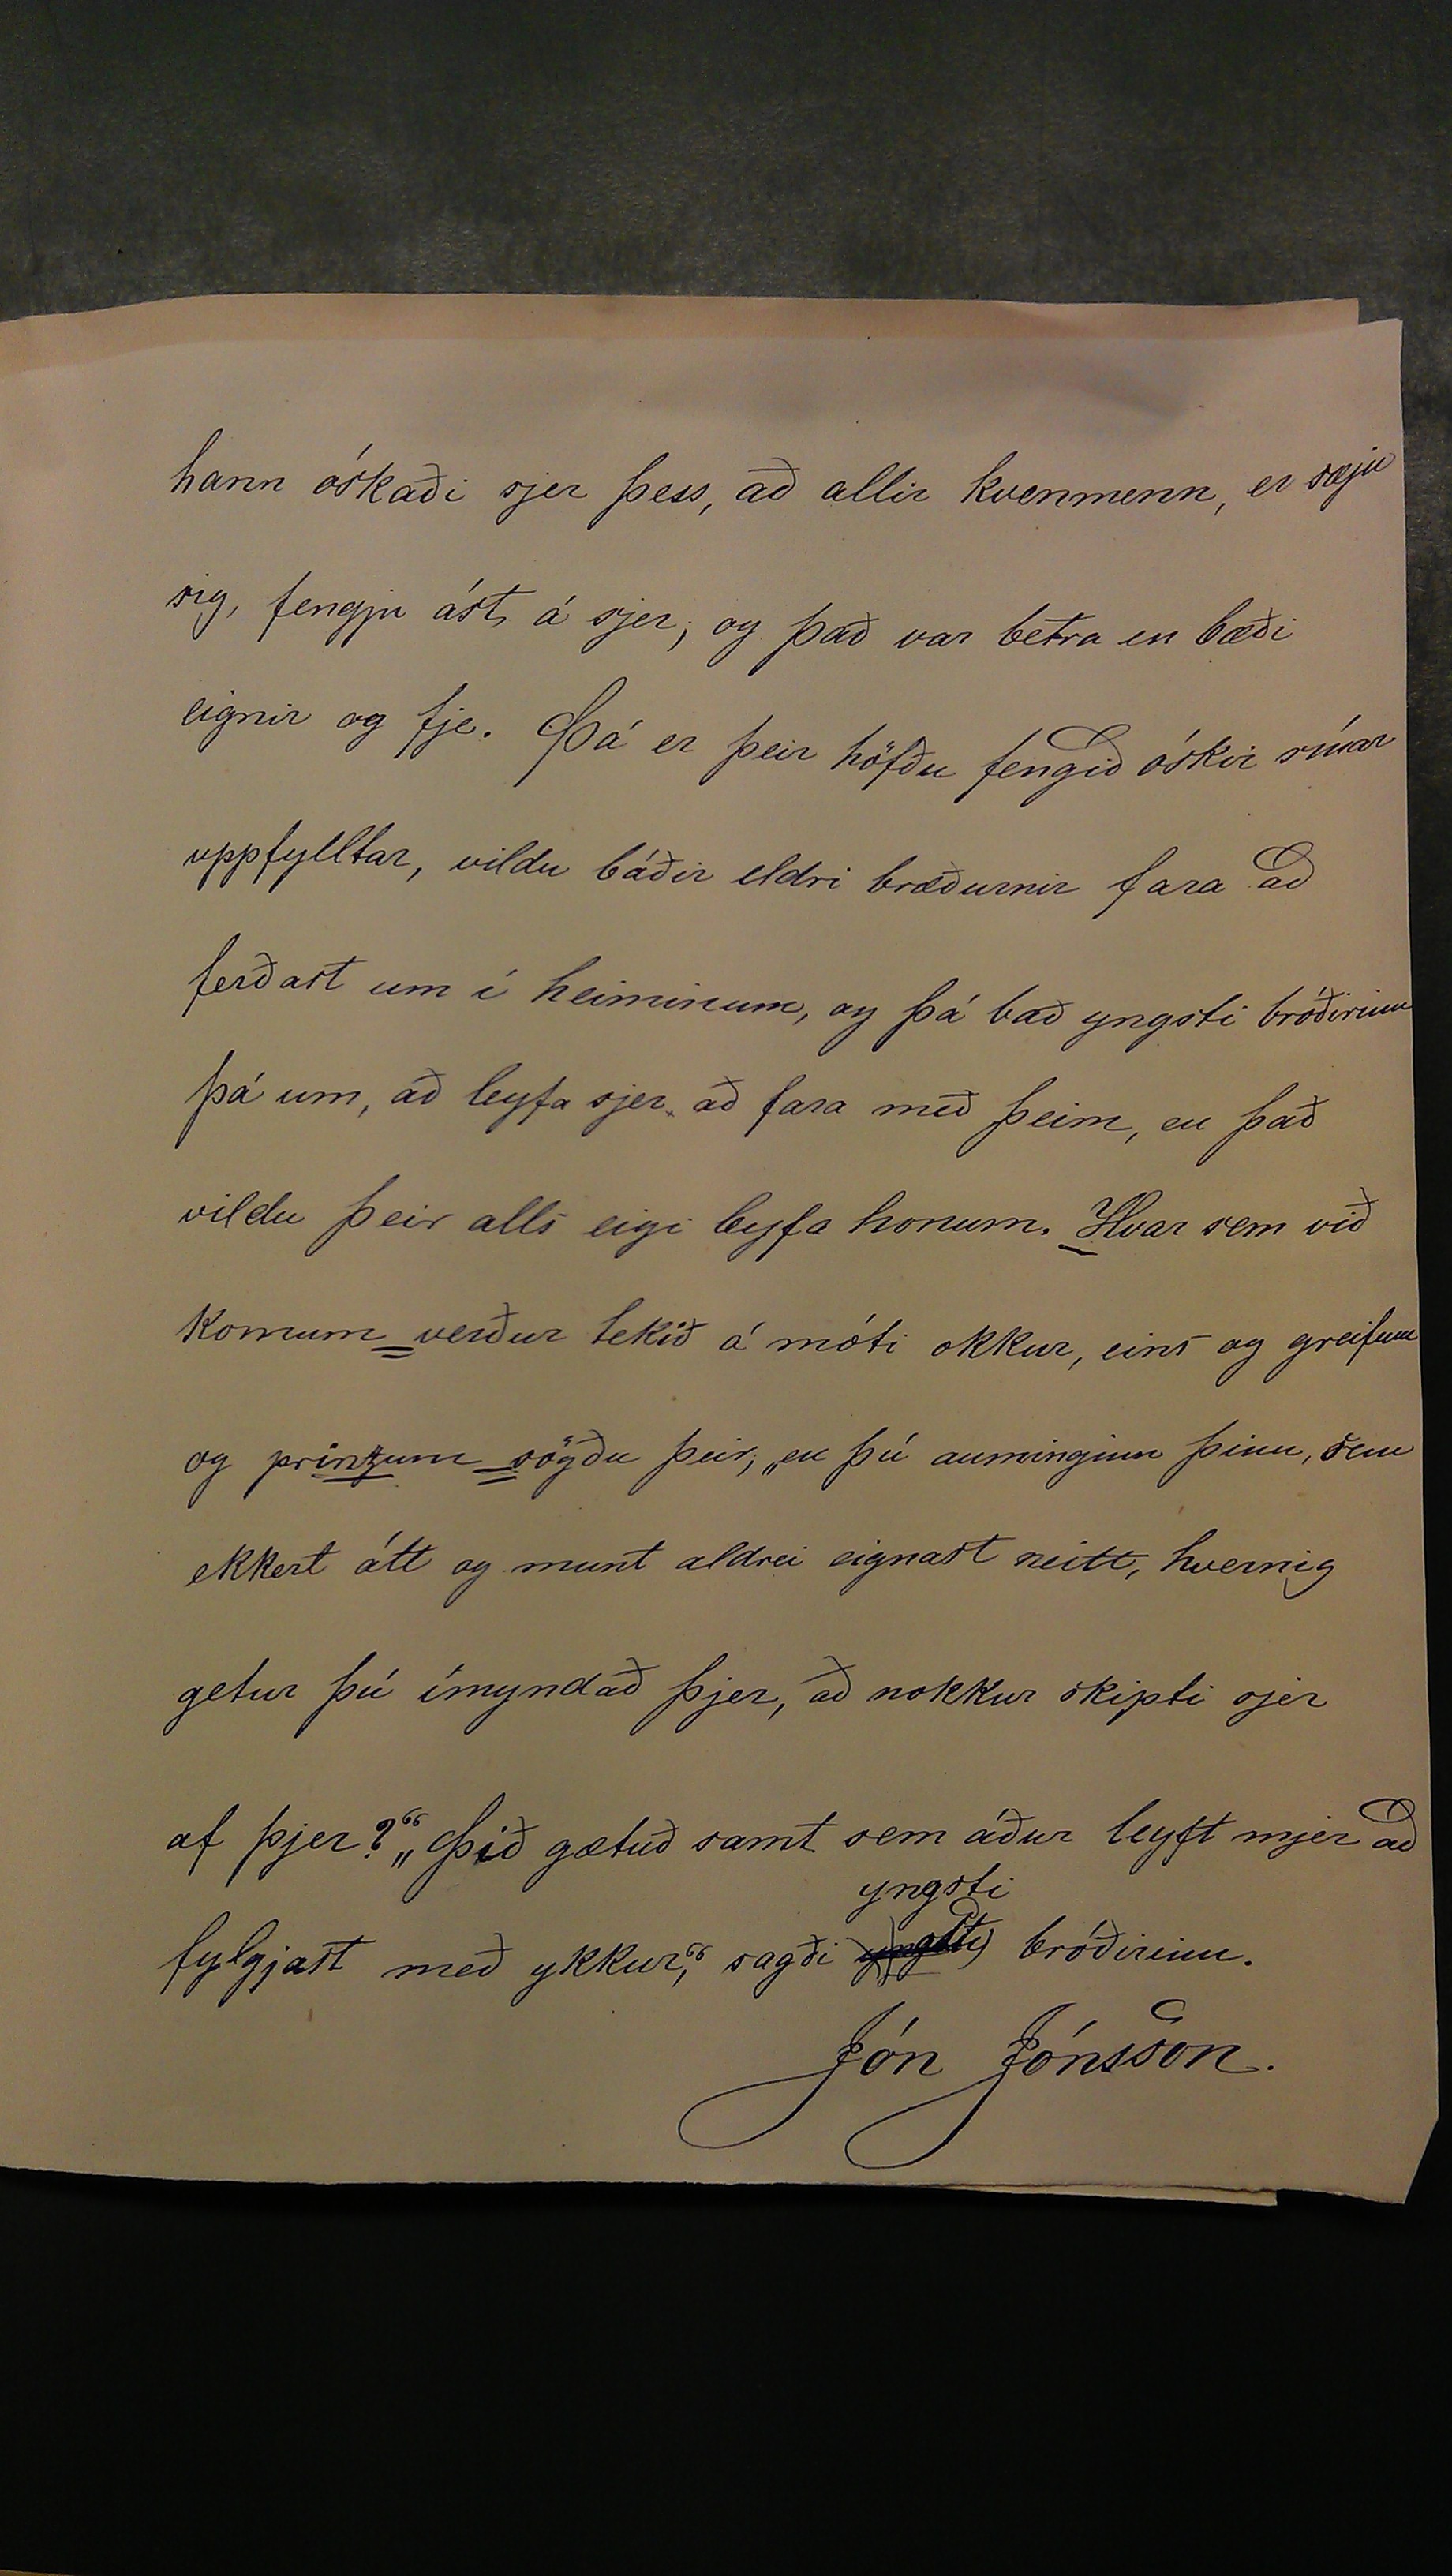 hann óskaði sjer þess, að allir kvenmenn, er sæju
sig, fengju ást á sjer; og það var betra en bæði
eignir og fje. Þá er þeir höfðu fengið óskir sínar
uppfylltar, vildu báðir eldri bræðurnir fara að
ferðast um í heiminum, og þá bað yngsti bróðirinn
þá um, að leyfa sjer að fara með þeim, en það
vildu þeir alls eigi leyfa honum. Hvar sem við
komum verður tekið á móti okkur, eins og greifum
og prinzum sögðu þeir; „en þú auminginn þinn, sem
ekkert átt og munt aldrei eignast neitt, hvernig
getur þú ímyndað þjer, að nokkur skipti sjer
af þjer?“ „Þið gætuð samt sem áður leyft mjer að
yngsti
fylgjast með ykkur,“ sagði yngsti bróðirinn.
Jón Jónsson.